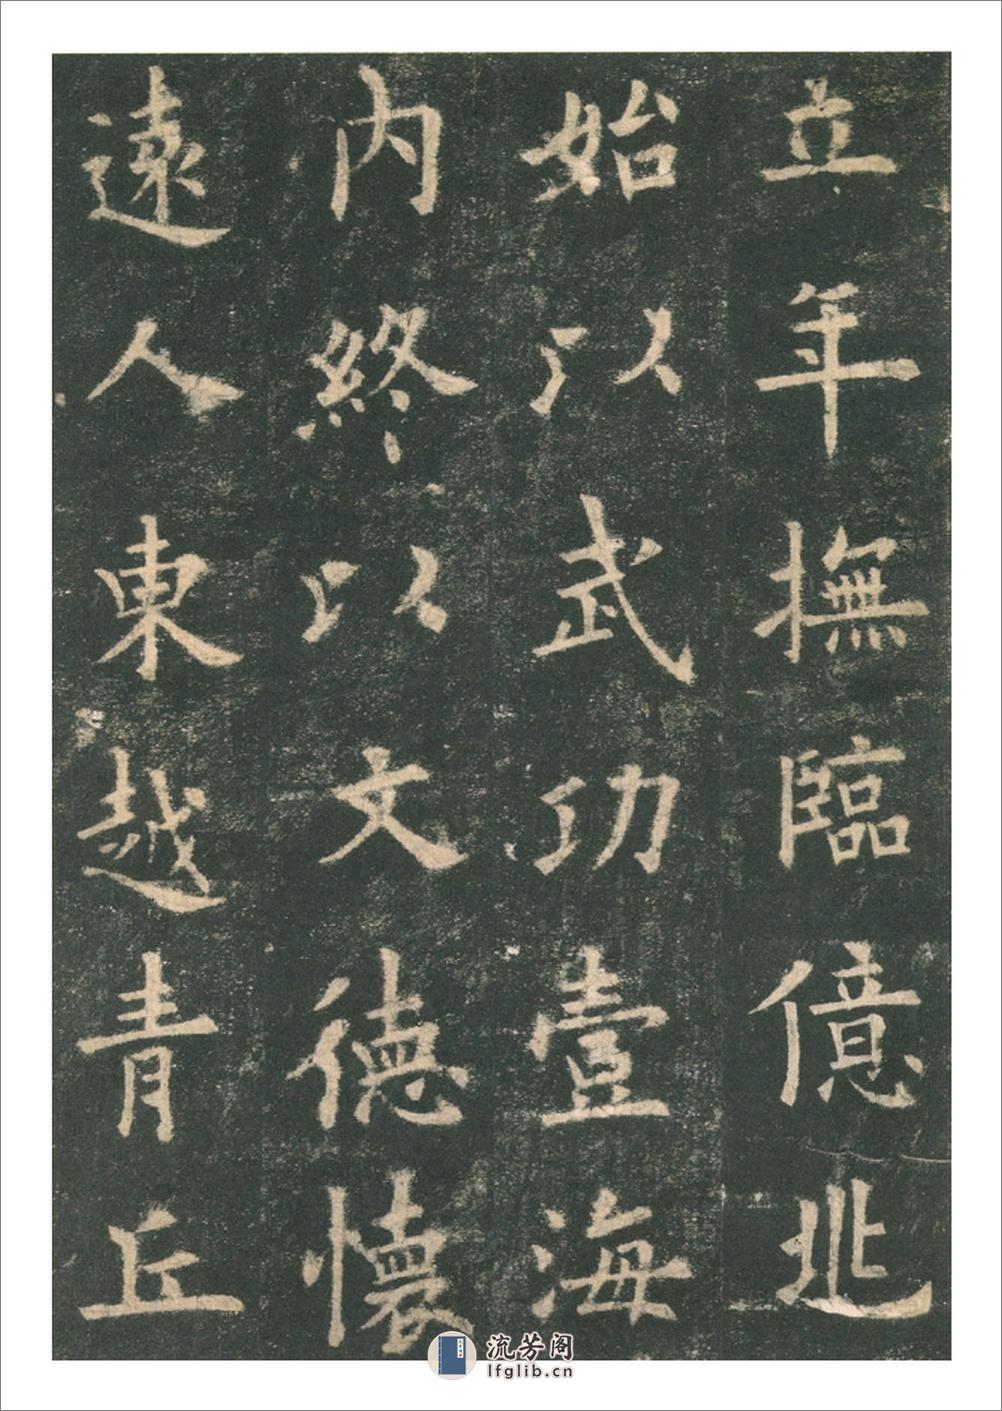 立年撫臨億兆
始以武功壹海
内終以文德懷
遠人東越青丘
流芳阁
lfglib.cn